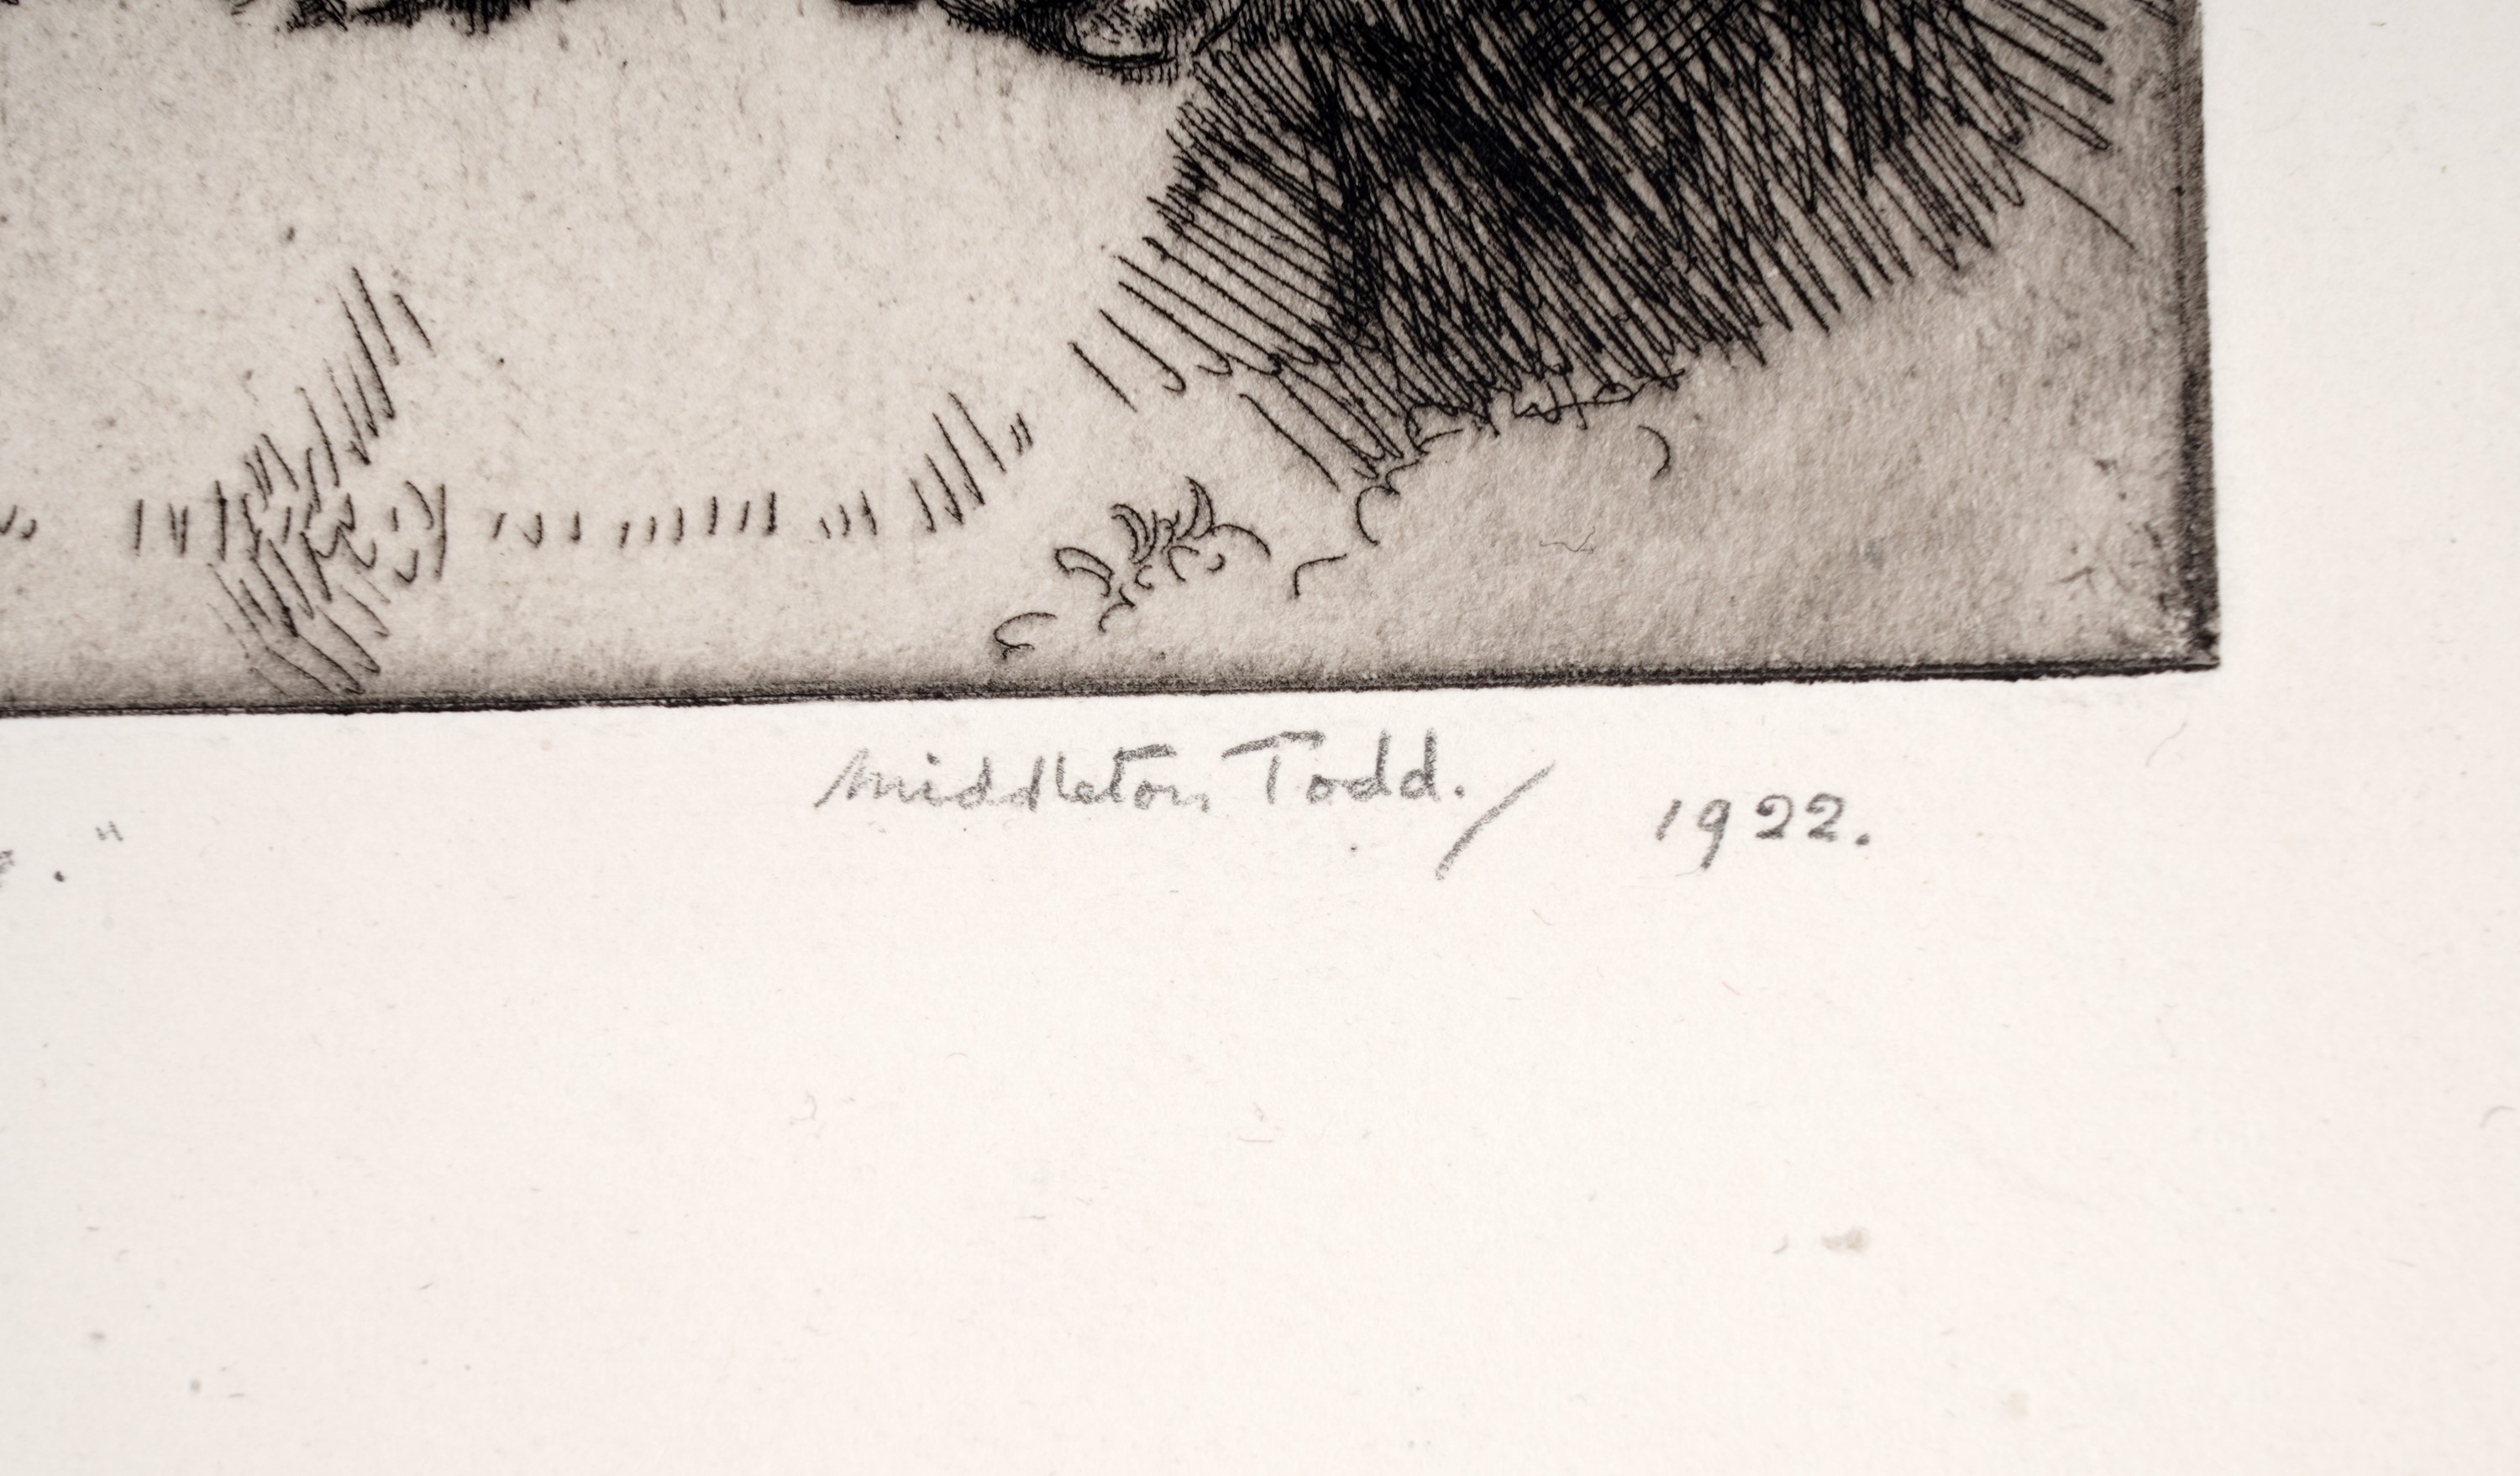 Middleton Todd. / 1922.